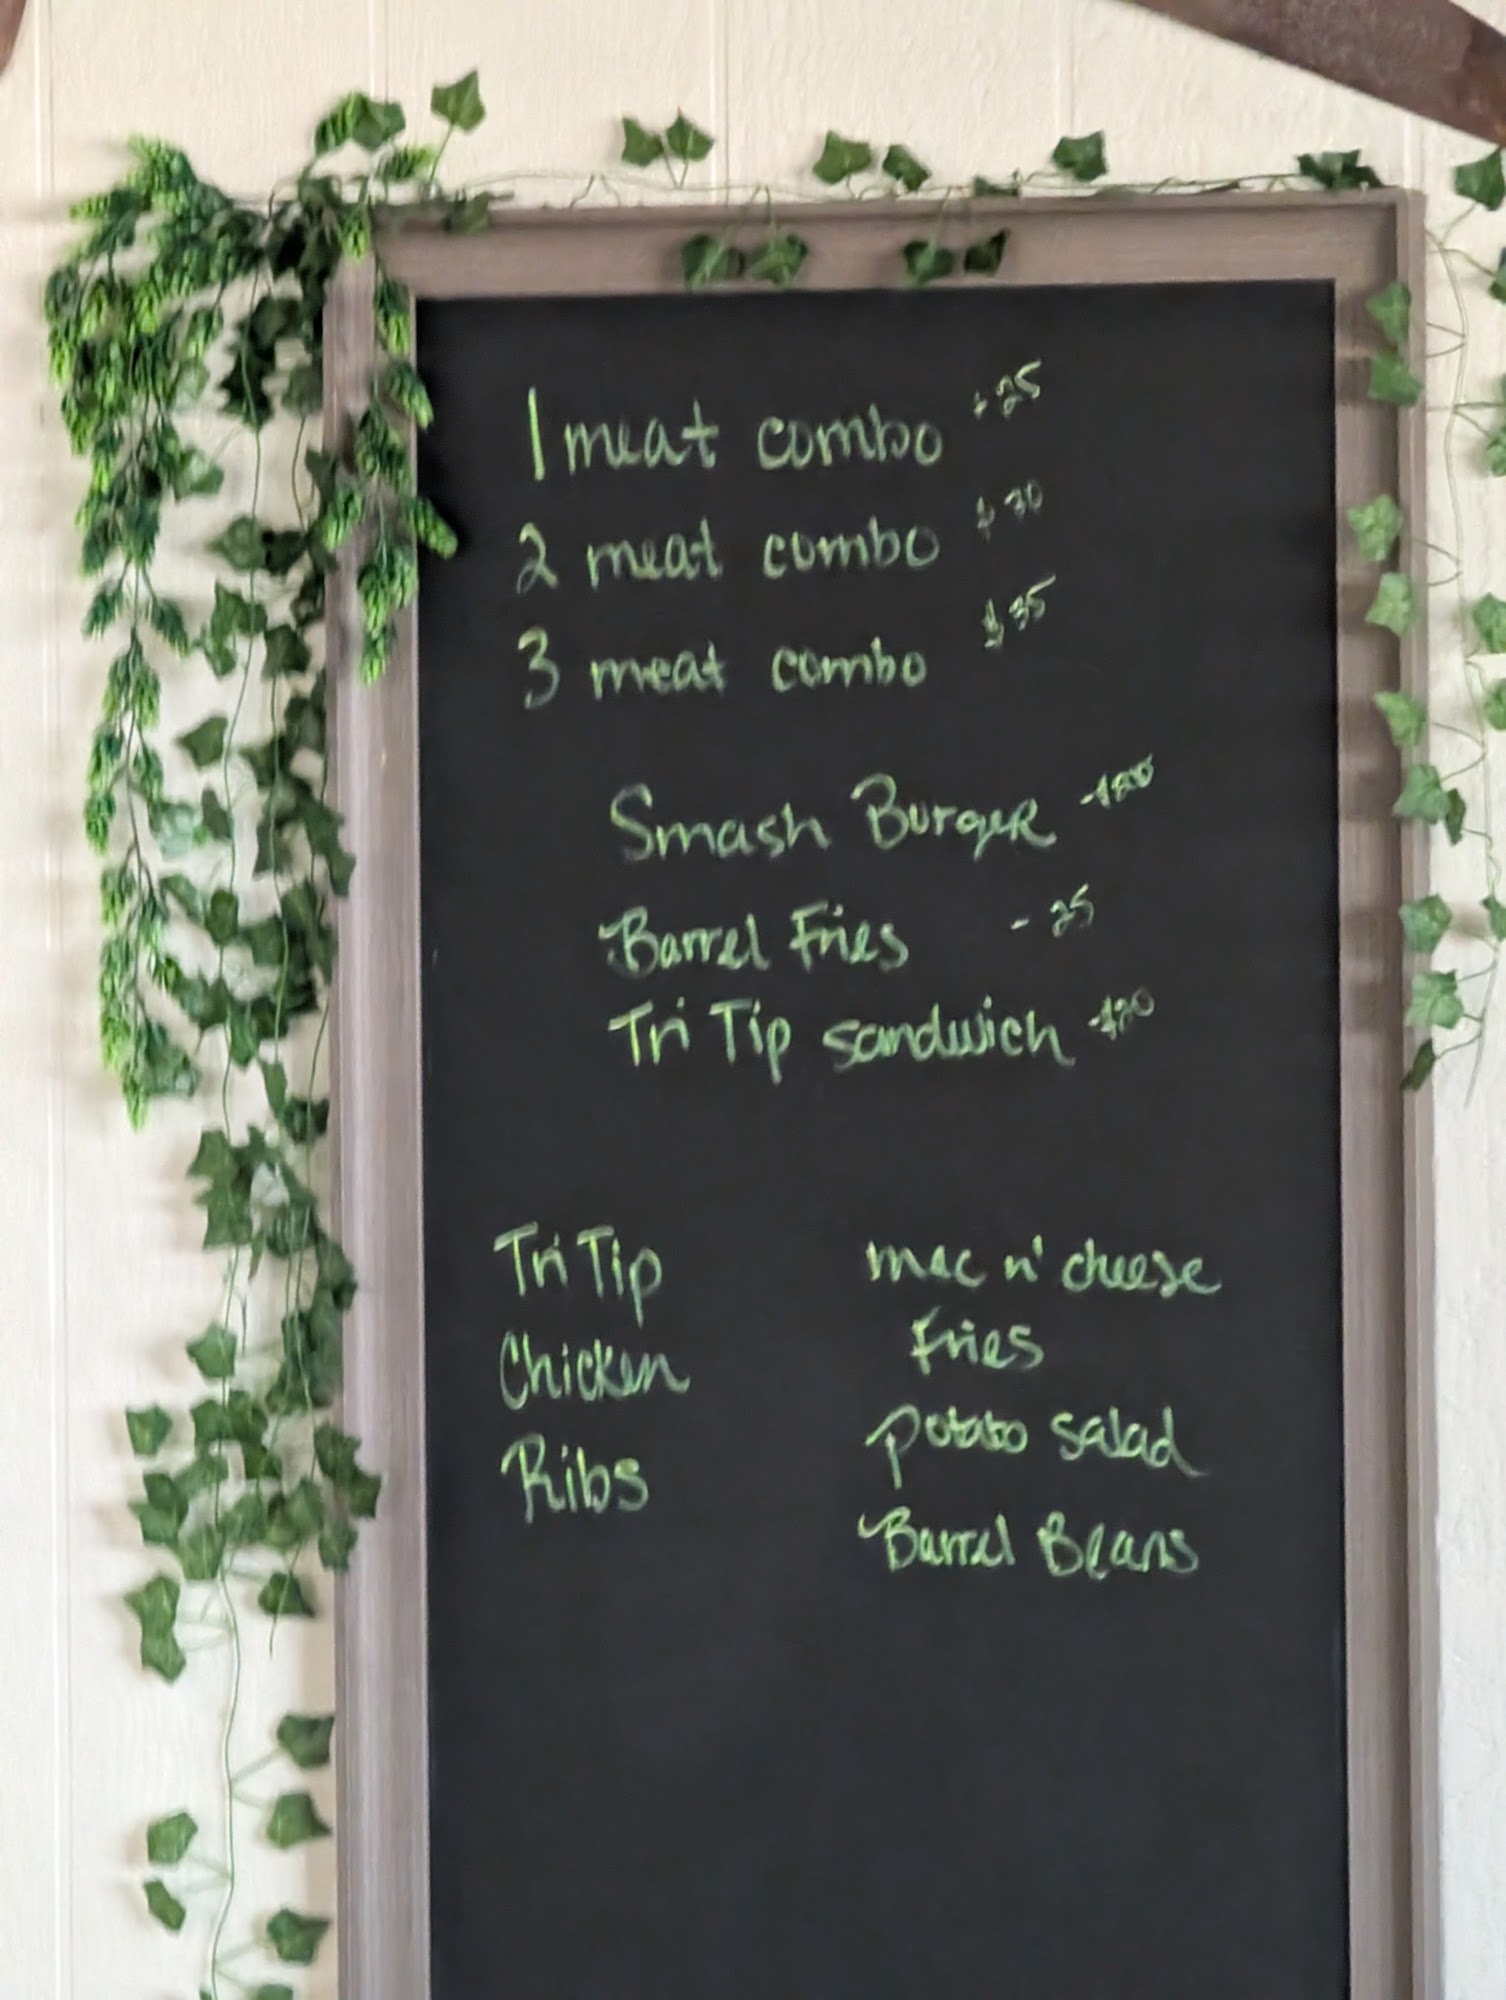 1 meat combo $25
2 meat combo $30
3 meat combo $35
Smash Burger
Barrel Fries - 25
Tri Tip sandwich - $20
Tri Tip
Chicken
Ribs
mac n' cheese
Fries
potato salad
Barrel Beans